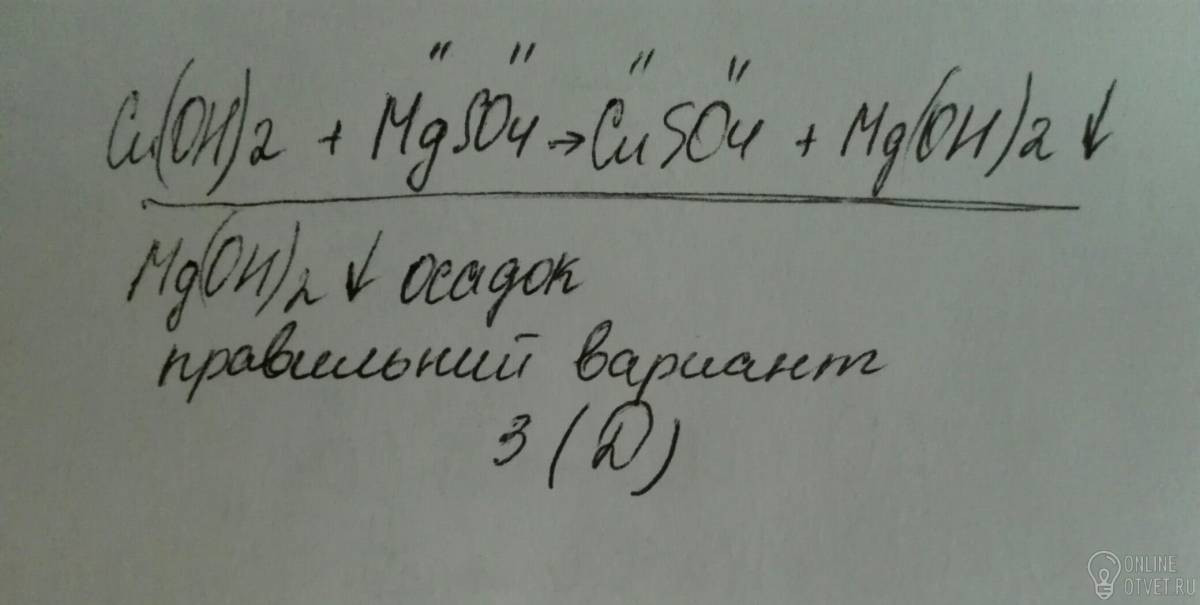 Cu(OH)2 + MgSO4 → CuSO4 + Mg(OH)2 ↓
Mg(OH)2 ↓ осадок
правильний вариант
3 (D)
ONLINE
OTVET.RU